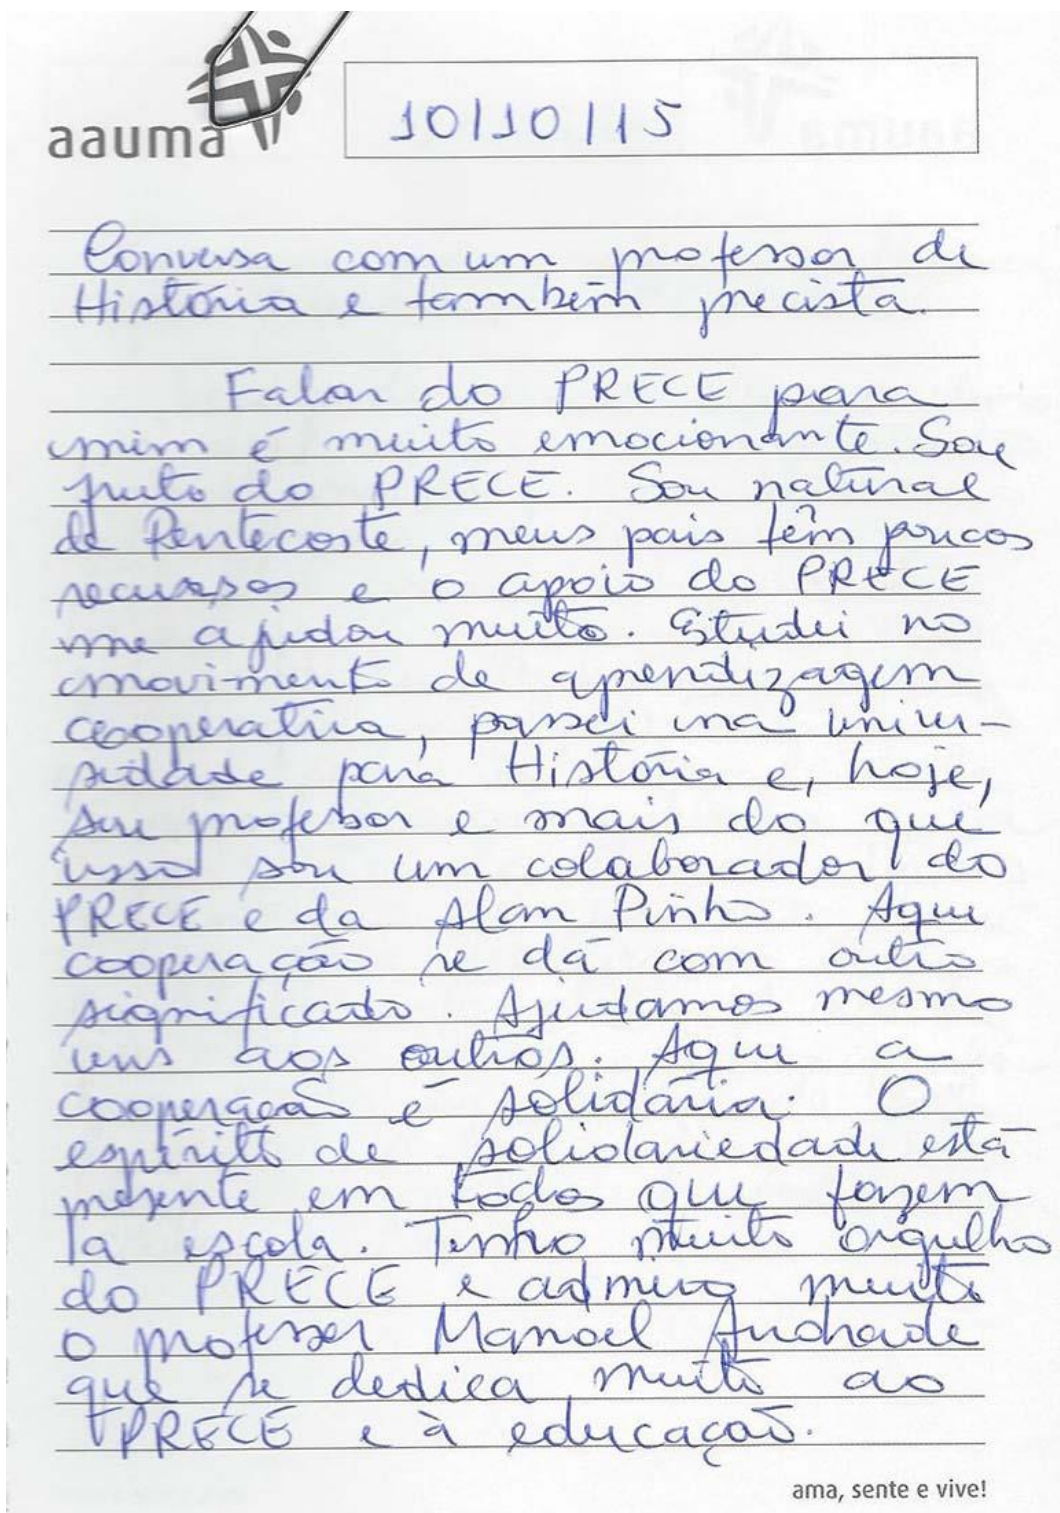 aauma
10/10/15
Conversa com um professor de
História e também precista.
Falar do PRECE para
mim é muito emocionante. Sou
fruto do PRECE. Sou natural
de Pentecoste, meus pais têm poucos
recursos e o apoio do PRECE
me ajudou muito. Estudei no
movimento de aprendizagem
cooperativa, passei na univer-
sidade para História e, hoje,
sou professor e mais do que
isso sou um colaborador do
PRECE e da Alan Pinho. Aqui
cooperação se dá com outro
significado. Ajudamos mesmo
uns aos outros. Aqui a
cooperação é solidária. O
espírito de solidariedade está
presente em todos que fazem
a escola. Tenho muito orgulho
do PRECE e admiro muito
o professor Manoel Andrade
que se dedica muito ao
PRECE e à educação.
ama, sente e vive!